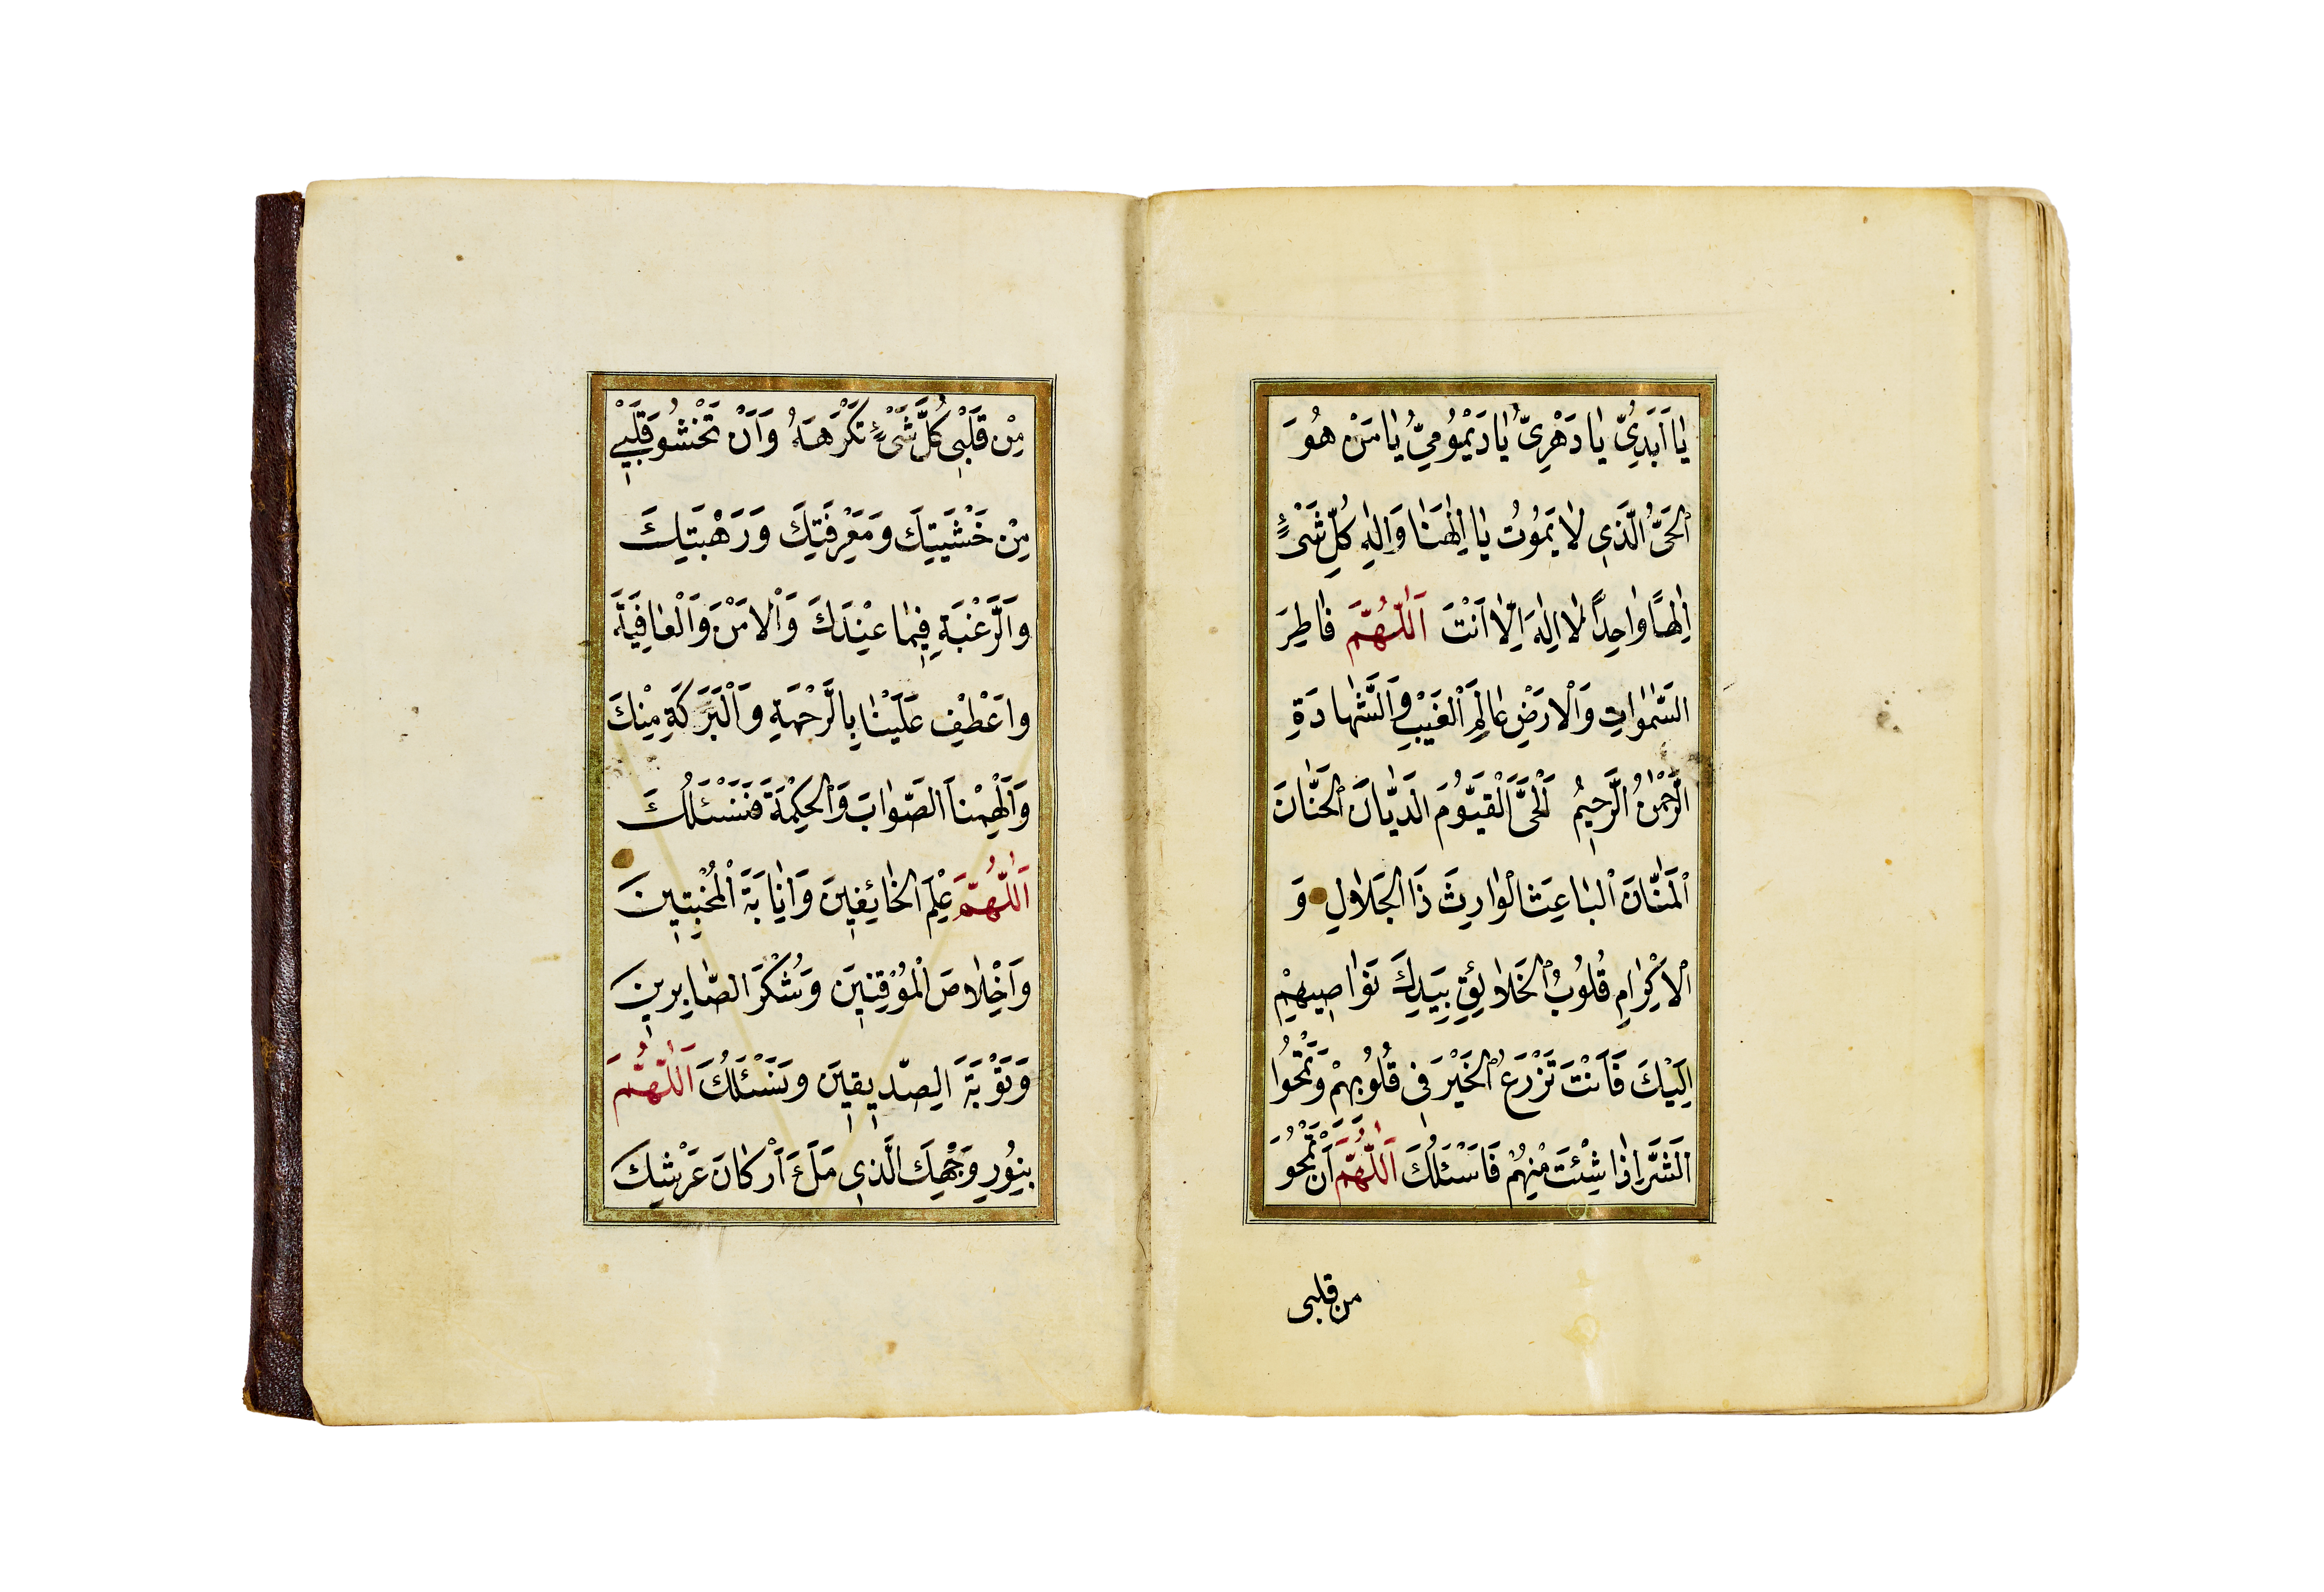 يَا اَبَدِيُّ يَا دَهْرِيُّ يَا دَيْمُومِيُّ يَا مَنْ هُوَ
الْحَيُّ الَّذِي لَا يَمُوتُ يَا اِلٰهَنَا وَاِلٰهِ كُلِّ شَيْءٍ
اِلٰهًا وَاحِدًا لَا اِلٰهَ اِلَّا اَنْتَ اَللّٰهُمَّ فَاطِرَ
السَّمٰوَاتِ وَالْاَرْضِ عَالِمَ الْغَيْبِ وَالشَّهَادَةِ
الرَّحْمٰنُ الرَّحِيمُ اَلْحَيَّ الْقَيُّومَ الدَّيَّانَ الْحَنَّانَ
الْمَنَّانَ الْبَاعِثَ الْوَارِثَ ذَا الْجَلَالِ وَ
الْاِكْرَامِ قُلُوبُ الْخَلَائِقِ بِيَدِكَ نَوَاصِيهِمْ
اِلَيْكَ فَاَنْتَ تَزْرَعُ الْخَيْرَ فِي قُلُوبِهِمْ وَتَمْحُوا
الشَّرَّ اِذَا شِئْتَ مِنْهُمْ فَاَسْئَلُكَ اَللّٰهُمَّ اَنْ تَمْحُوَ
من قلبى
مِنْ قَلْبِي كُلَّ شَيْءٍ تَكْرَهَهُ وَاَنْ تَحْشُوَ قَلْبِي
مِنْ خَشْيَتِكَ وَمَعْرِفَتِكَ وَرَهْبَتِكَ
وَالرَّغْبَةِ فِيمَا عِنْدَكَ وَالْاَمْنَ وَالْعَافِيَةَ
وَاعْطِفْ عَلَيْنَا بِالرَّحْمَةِ وَالْبَرَكَةِ مِنْكَ
وَاَلْهِمْنَا الصَّوَابَ وَالْحِكْمَةَ فَنَسْئَلُكَ
اَللّٰهُمَّ عِلْمَ الْخَائِفِينَ وَاِنَابَةَ الْمُخْبِتِينَ
وَاِخْلَاصَ الْمُوقِنِينَ وَشُكْرَ الصَّابِرِينَ
وَتَوْبَةَ الصِّدِّيقِينَ وَنَسْئَلُكَ اَللّٰهُمَّ
بِنُورِ وَجْهِكَ الَّذِي مَلَأَ اَرْكَانَ عَرْشِكَ